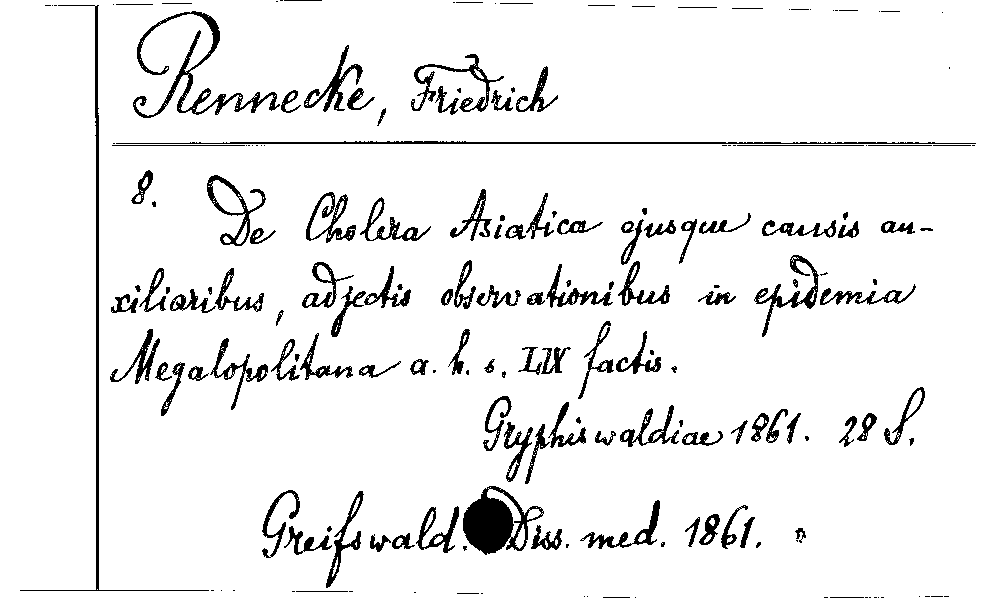 Rennecke, Friedrich
8.
De Cholera Asiatica ejusque causis au-
xiliaribus, adjectis observationibus in epidemia
Megalopolitana a. h. s. LIX factis.
Gryphiswaldiae 1861. 28 S.
Greifswald. Diss. med. 1861.